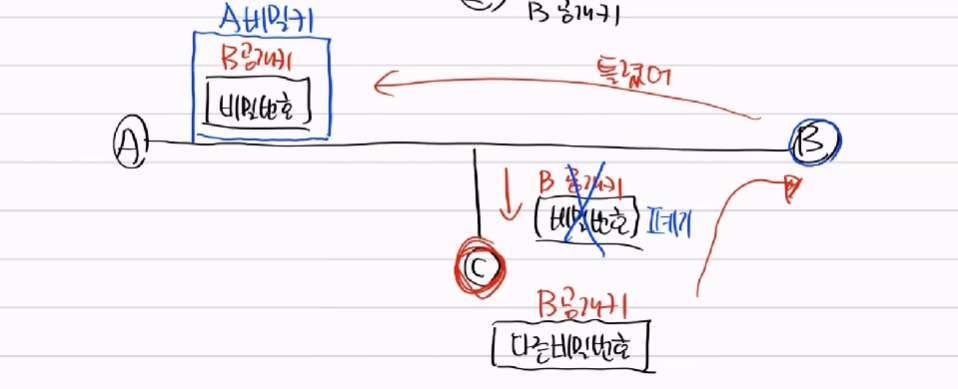 B 공개키
A 비밀키
B공개키
비밀번호
틀렸어
A
B
B 공개키
비밀번호
폐기
C
B공개키
다른비밀번호